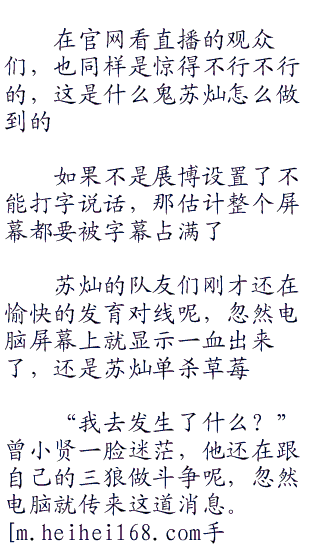 在官网看直播的观众
们，也同样是惊得不行不行
的，这是什么鬼苏灿怎么做
到的
如果不是展博设置了不
能打字说话，那估计整个屏
幕都要被字幕占满了
苏灿的队友们刚才还在
愉快的发育对线呢，忽然电
脑屏幕上就显示一血出来
了，还是苏灿单杀草莓
“我去发生了什么？”
曾小贤一脸迷茫，他还在跟
自己的三狼做斗争呢，忽然
电脑就传来这道消息。
[m.heihei168.com手